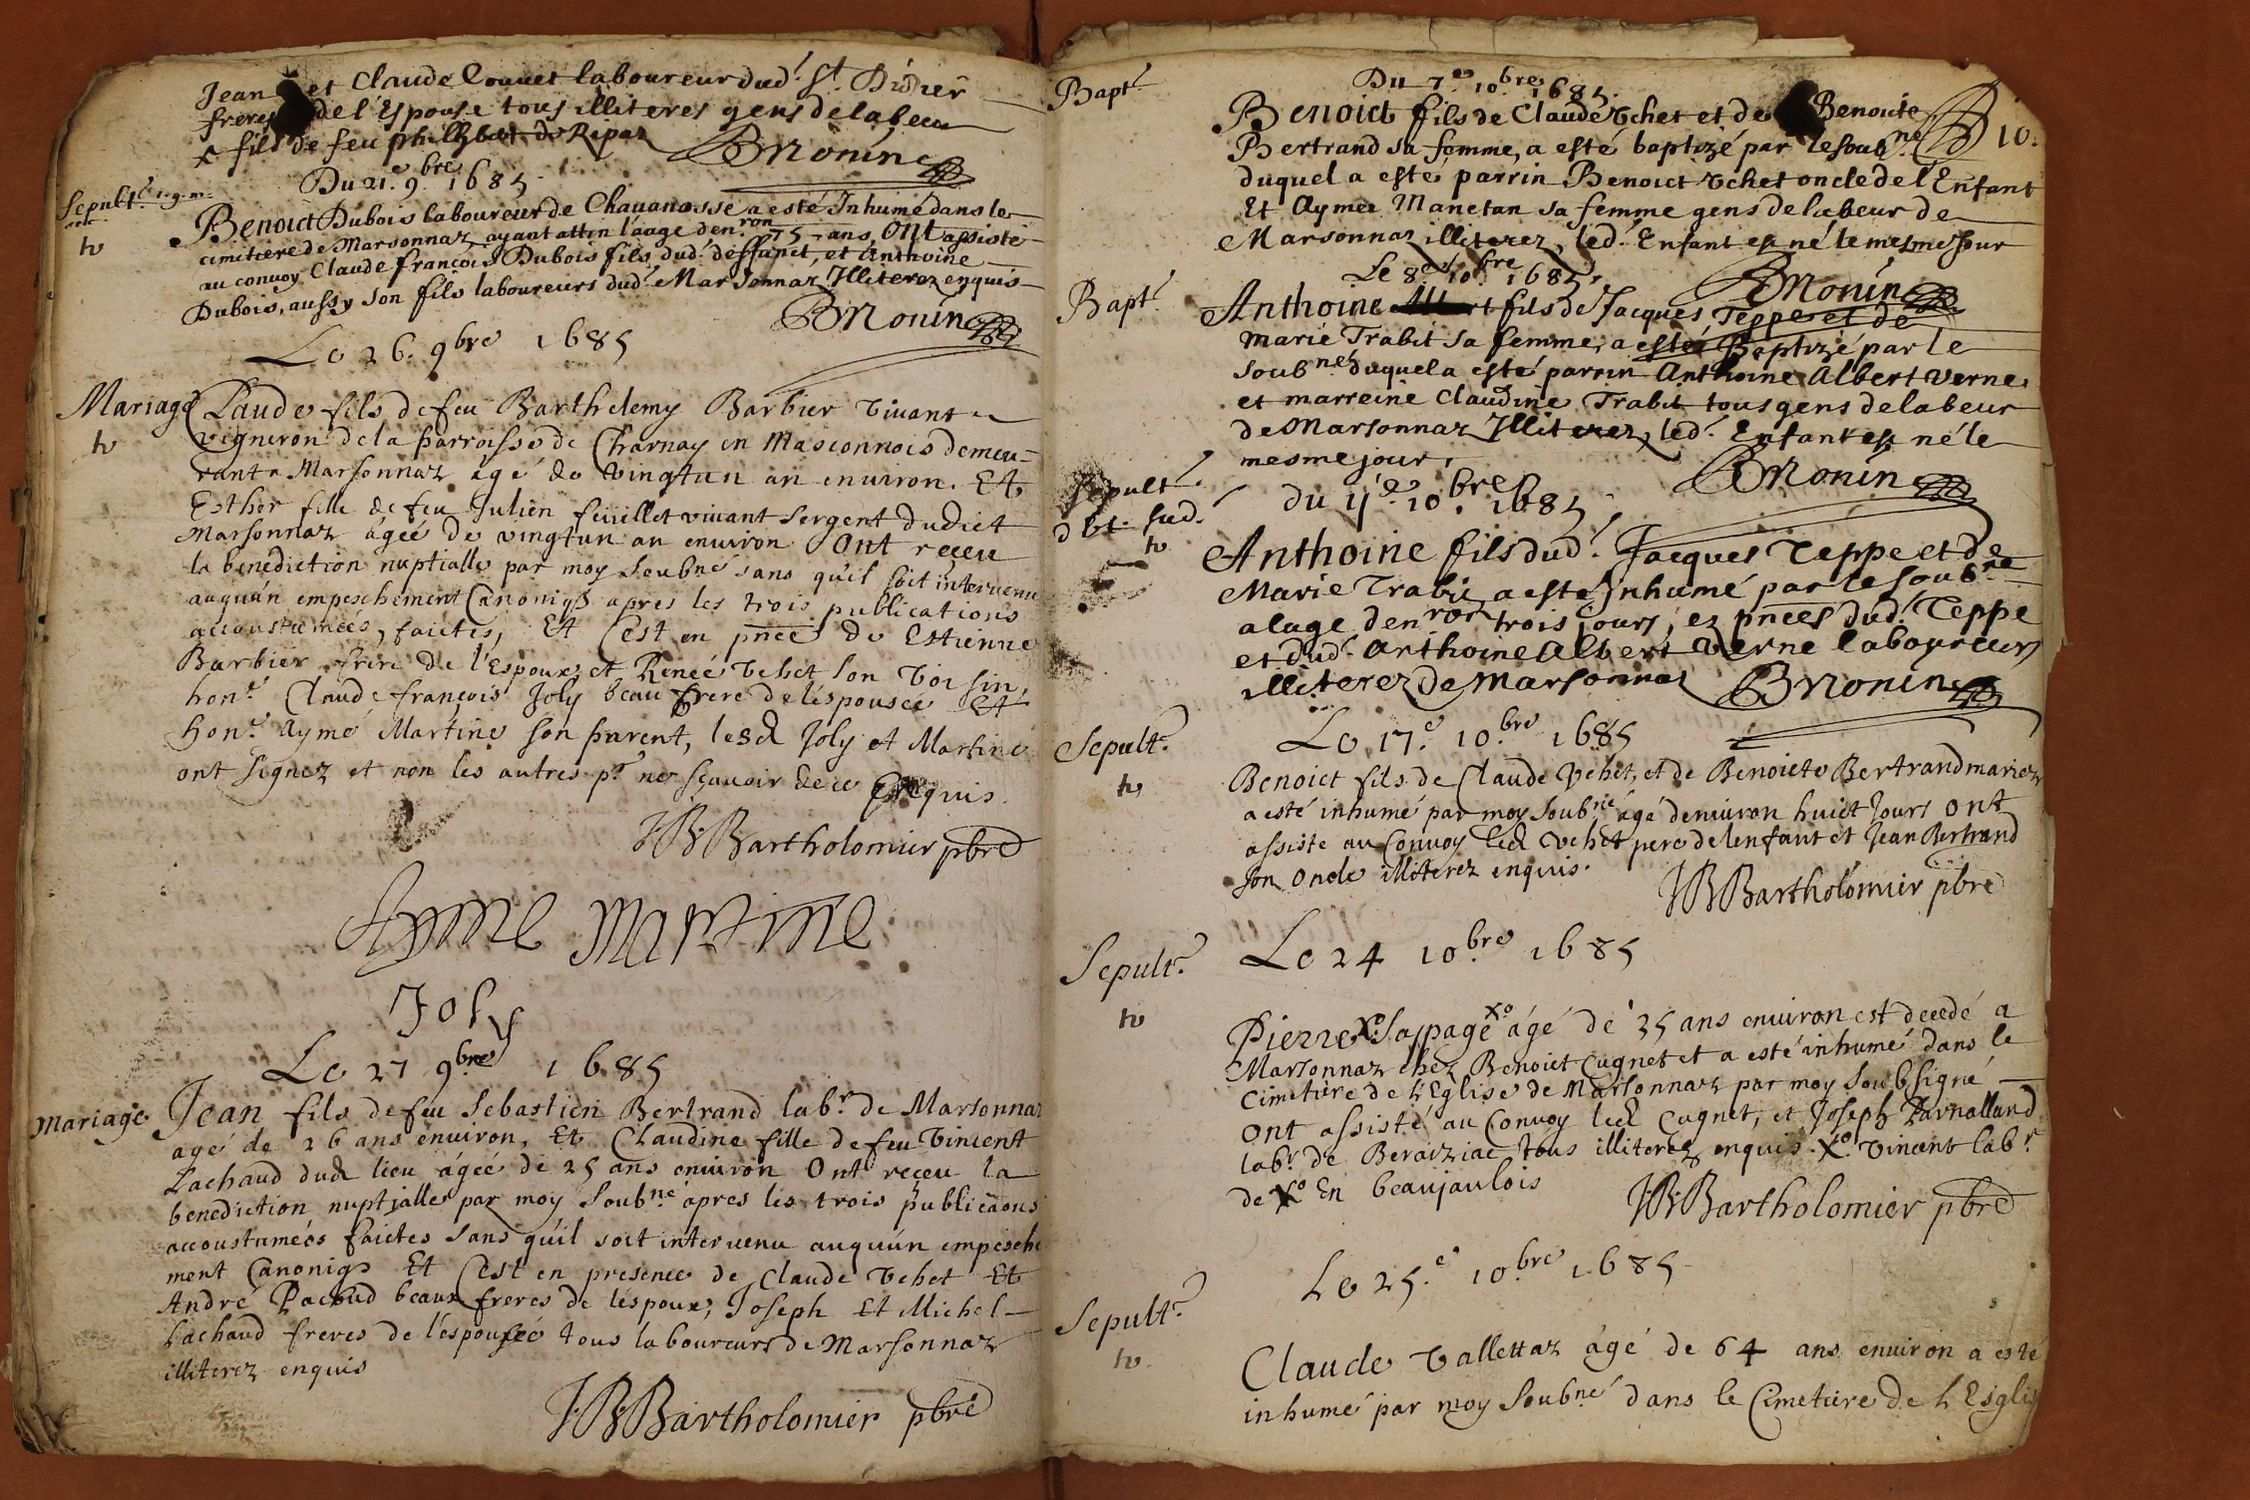 Jean et Claude Couuet laboureur dud.t St Didier
freres de l'Espouse tous illiteres gens delabeur
x fils de feu philibert de Repaz BMonin
Du 21.e 9.bre 1685.
Sepult.e
Benoict Dubois laboureur de Chauanosse a esté Inhumé dans le
cimitiere de Marsonnaz, ayant attin l'aage den.ron 75 ans, Ont assisté
au convoy Claude françois Dubois fils dud.t deffunct, et Anthoine
Dubois, aussy son fils laboureurs dud.t Marsonnaz Jlliterez enquis
BMonin
Le 26. 9bre 1685
Mariage
Claude fils de feu Barthelemy Barbier viuant
vigneron de la parroisse de Charnay en Masconnois demeu=
rant a Marsonnaz agé de vingtun an enuiron. Et
Esther fille de feu Julien feuillet viuant sergent dudict
Marsonnaz ágéé de vingtun an enuiron Ont reçeu
la benediction nuptialle par moy Soubné sans qu'il soit interuenu
auquún empeschement Canoniq3 apres les trois publications
accoustumées, faictes, Et C'est en pñce de Estienne
Barbier frere de l'Espoux, et Reneé Vehet son Voisin,
hon.e Claude françois Joly beau frere de léspouseé Et
hon.e Aymé Martine son parent, lesd Joly et Martine
ont signez et non les autres p.r ne sçauoir de ce Enquis.
JBBartholomier pbre
Ayme Martine
Joly
Le 27 9bre 1685
Mariage
Jean fils de feu Sebastien Bertrand lab.r de Marsonnaz
agé de 26 ans enuiron, Et Claudine fille de feu Vincent
Lachaud dud lieu ágéé de 25 ans enuiron Ont reçeu la
benediction nuptjalle par moy Soub.né apres les trois publicaõns
accoustuméés faictes sans qu'il soit interuenu auquún empesche
ment Canoniq3 Et C'est en presence de Claude Vehet Et
André Pacoud beaux freres de léspoux, Joseph Et Michel
Lachaud freres de l'éspouseé tous laboureurs de Marsonnaz
illiterez enquis
JBBartholomier pbre
Bapt.e
Du 7.e 10.bre 1685.
Benoict fils de Claude Vehet et de Benoite
Bertrand sa femme, a esté baptizé par le soub.né 10.
duquel a esté parrin Benoict Vehet oncle de l'Enfant
Et Aymee Manetan sa femme gens de labeur de
Marsonnaz illiterez, led.t Enfant est né le mesme Jour
BMonin
Le 8.e 10.bre 1685.
Bapt.e
Anthoine fils de Jacques Teppe et de
Marie Trabit sa femme, a esté Baptizé par le
Soubné duquel a esté parrin Anthoine Albert Verne
et marreine Claudine Trabit tous gens de labeur
de Marsonnaz Jlliterez, led.t Enfant est né le
mesme jour.
BMonin
Sepult.e
dbt. sud.
du 11.e 10.bre 1685.
Anthoine fils dud.t Jacques Teppe et de
Marie Trabit a esté Jnhumé par le soub.né
a l'age den.ron trois jours, ez pñces dud.t Teppe
et dud.t Anthoine Albert Verne laboureurs
illiterez de Marsonnaz BMonin
Sepult.e
Le 17.e 10.bre 1685
Benoict fils de Claude Vehet, et de Benoicte Bertrand mariez
a esté inhumé par moy Soub.né ágé denuiron huict Jours Ont
assisté au Convoy led Vehet pere de lenfant et Jean Bertrand
son Oncle illiterez enquis.
JBBartholomier pbre
Sepult.e
Le 24 10.bre 1685
Pierre xo Sappage xo ágé de 35 ans enuiron est decedé a
Marsonnaz chéz Benoict Cugnet et a esté inhumé dans le
Cimetiere de L'Eglise de Marsonnaz par moy Soubsigné
Ont assisté au Convoy led Cugnet, et Joseph
labr. de tous illiterez enquis. xo Vincent lab.r
de xo En beaujaulois
JBBartholomier pbre
Le 25.e 10.bre 1685
Sepult.e
Claude Vallettaz ágé de 64 ans enuiron a esté
inhumé par moy Soubné dans le Cimetiere de L'Esglis